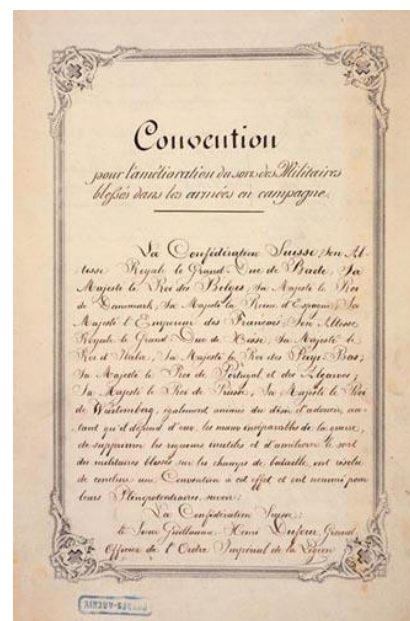 Convention
pour l'amélioration du sort des Militaires
blessés dans les armées en campagne.
La Confédération Suisse; Son Al-
tesse Royale le Grand-Duc de Bade; Sa
Majesté le Roi des Belges; Sa Majesté le Roi
de Danemark; Sa Majesté la Reine d'Espagne; Sa
Majesté l'Empereur des Français; Son Altesse
Royale le Grand Duc de Hesse; Sa Majesté le
Roi d'Italie; Sa Majesté le Roi des Pays-Bas;
Sa Majesté le Roi de Portugal et des Algarves;
Sa Majesté le Roi de Prusse; Sa Majesté le Roi
de Würtemberg, également animés du désir d'adoucir, au-
tant qu'il dépend d'eux, les maux inséparables de la guerre,
de supprimer les rigueurs inutiles et d'améliorer le sort
des militaires blessés sur les champs de bataille, ont résolu
de conclure une Convention à cet effet et ont nommé pour
leurs Plénipotentiaires, savoir:
La Confédération Suisse:
le Sieur Guillaume Henri Dufour, Grand
Officier de l'Ordre Impérial de la Légion
BUNDES-ARCHIV